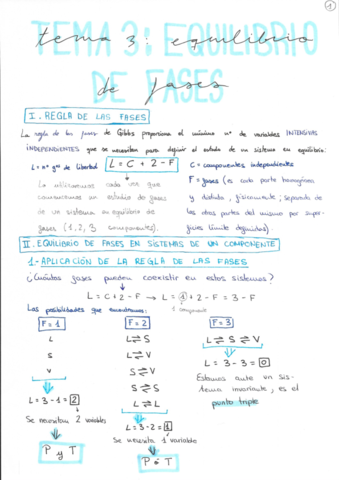 1
TEMA 3: EQUILIBRIO
DE FASES
tema 3: equilibrio
de fases
I. REGLA DE LAS FASES
La regla de las fases de Gibbs proporciona el mínimo nº de variables INTENSIVAS
INDEPENDIENTES que se necesitan para definir el estado de un sistema en equilibrio:
L = nº gºs de libertad
L = C + 2 - F
C = componentes independientes
F = fases (es cada parte homogénea
y distinta, físicamente, separada de
las otras partes del mismo por super-
ficies límite definidas).
La utilizamos cada vez que
comencemos un estudio de fases
de un sistema en equilibrio de
fases (1, 2, 3 componentes).
II. EQUILIBRIO DE FASES EN SISTEMAS DE UN COMPONENTE
1.- APLICACIÓN DE LA REGLA DE LAS FASES
¿Cuántas fases pueden coexistir en estos sistemas?
L = C + 2 - F → L = 1 + 2 - F = 3 - F
1 componente
Las posibilidades que encontramos:
F = 1
L
S
V
L = 3 - 1 = 2
Se necesitan 2 variables
P y T
F = 2
L ⇌ S
L ⇌ V
S ⇌ V
S ⇌ S
L ⇌ L
L = 3 - 2 = 1
Se necesita 1 variable
P ó T
F = 3
L ⇌ S ⇌ V
L = 3 - 3 = 0
Estamos ante un sis-
tema invariante, es el
punto triple